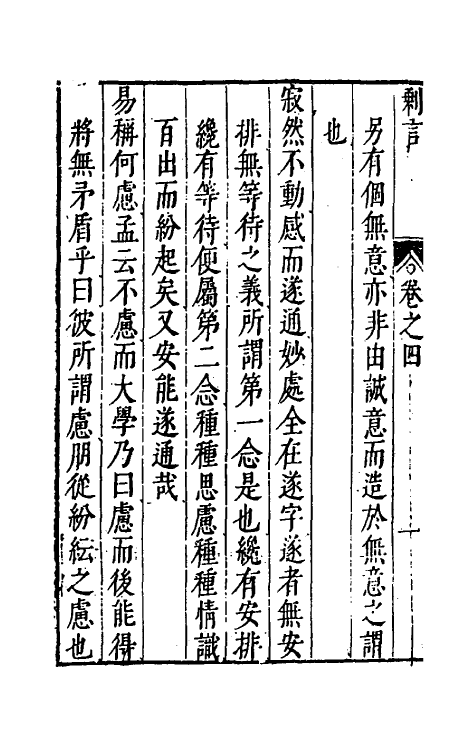 剩言
卷之四
一
另有個無意亦非由誠意而造於無意之謂
也
寂然不動感而遂通妙處全在遂字遂者無安
排無等待之義所謂第一念是也纔有安排
纔有等待便屬第二念種種思慮種種情識
百出而紛起矣又安能遂通哉
易稱何慮孟云不慮而大學乃曰慮而後能得
將無矛盾乎曰彼所謂慮朋從紛紜之慮也